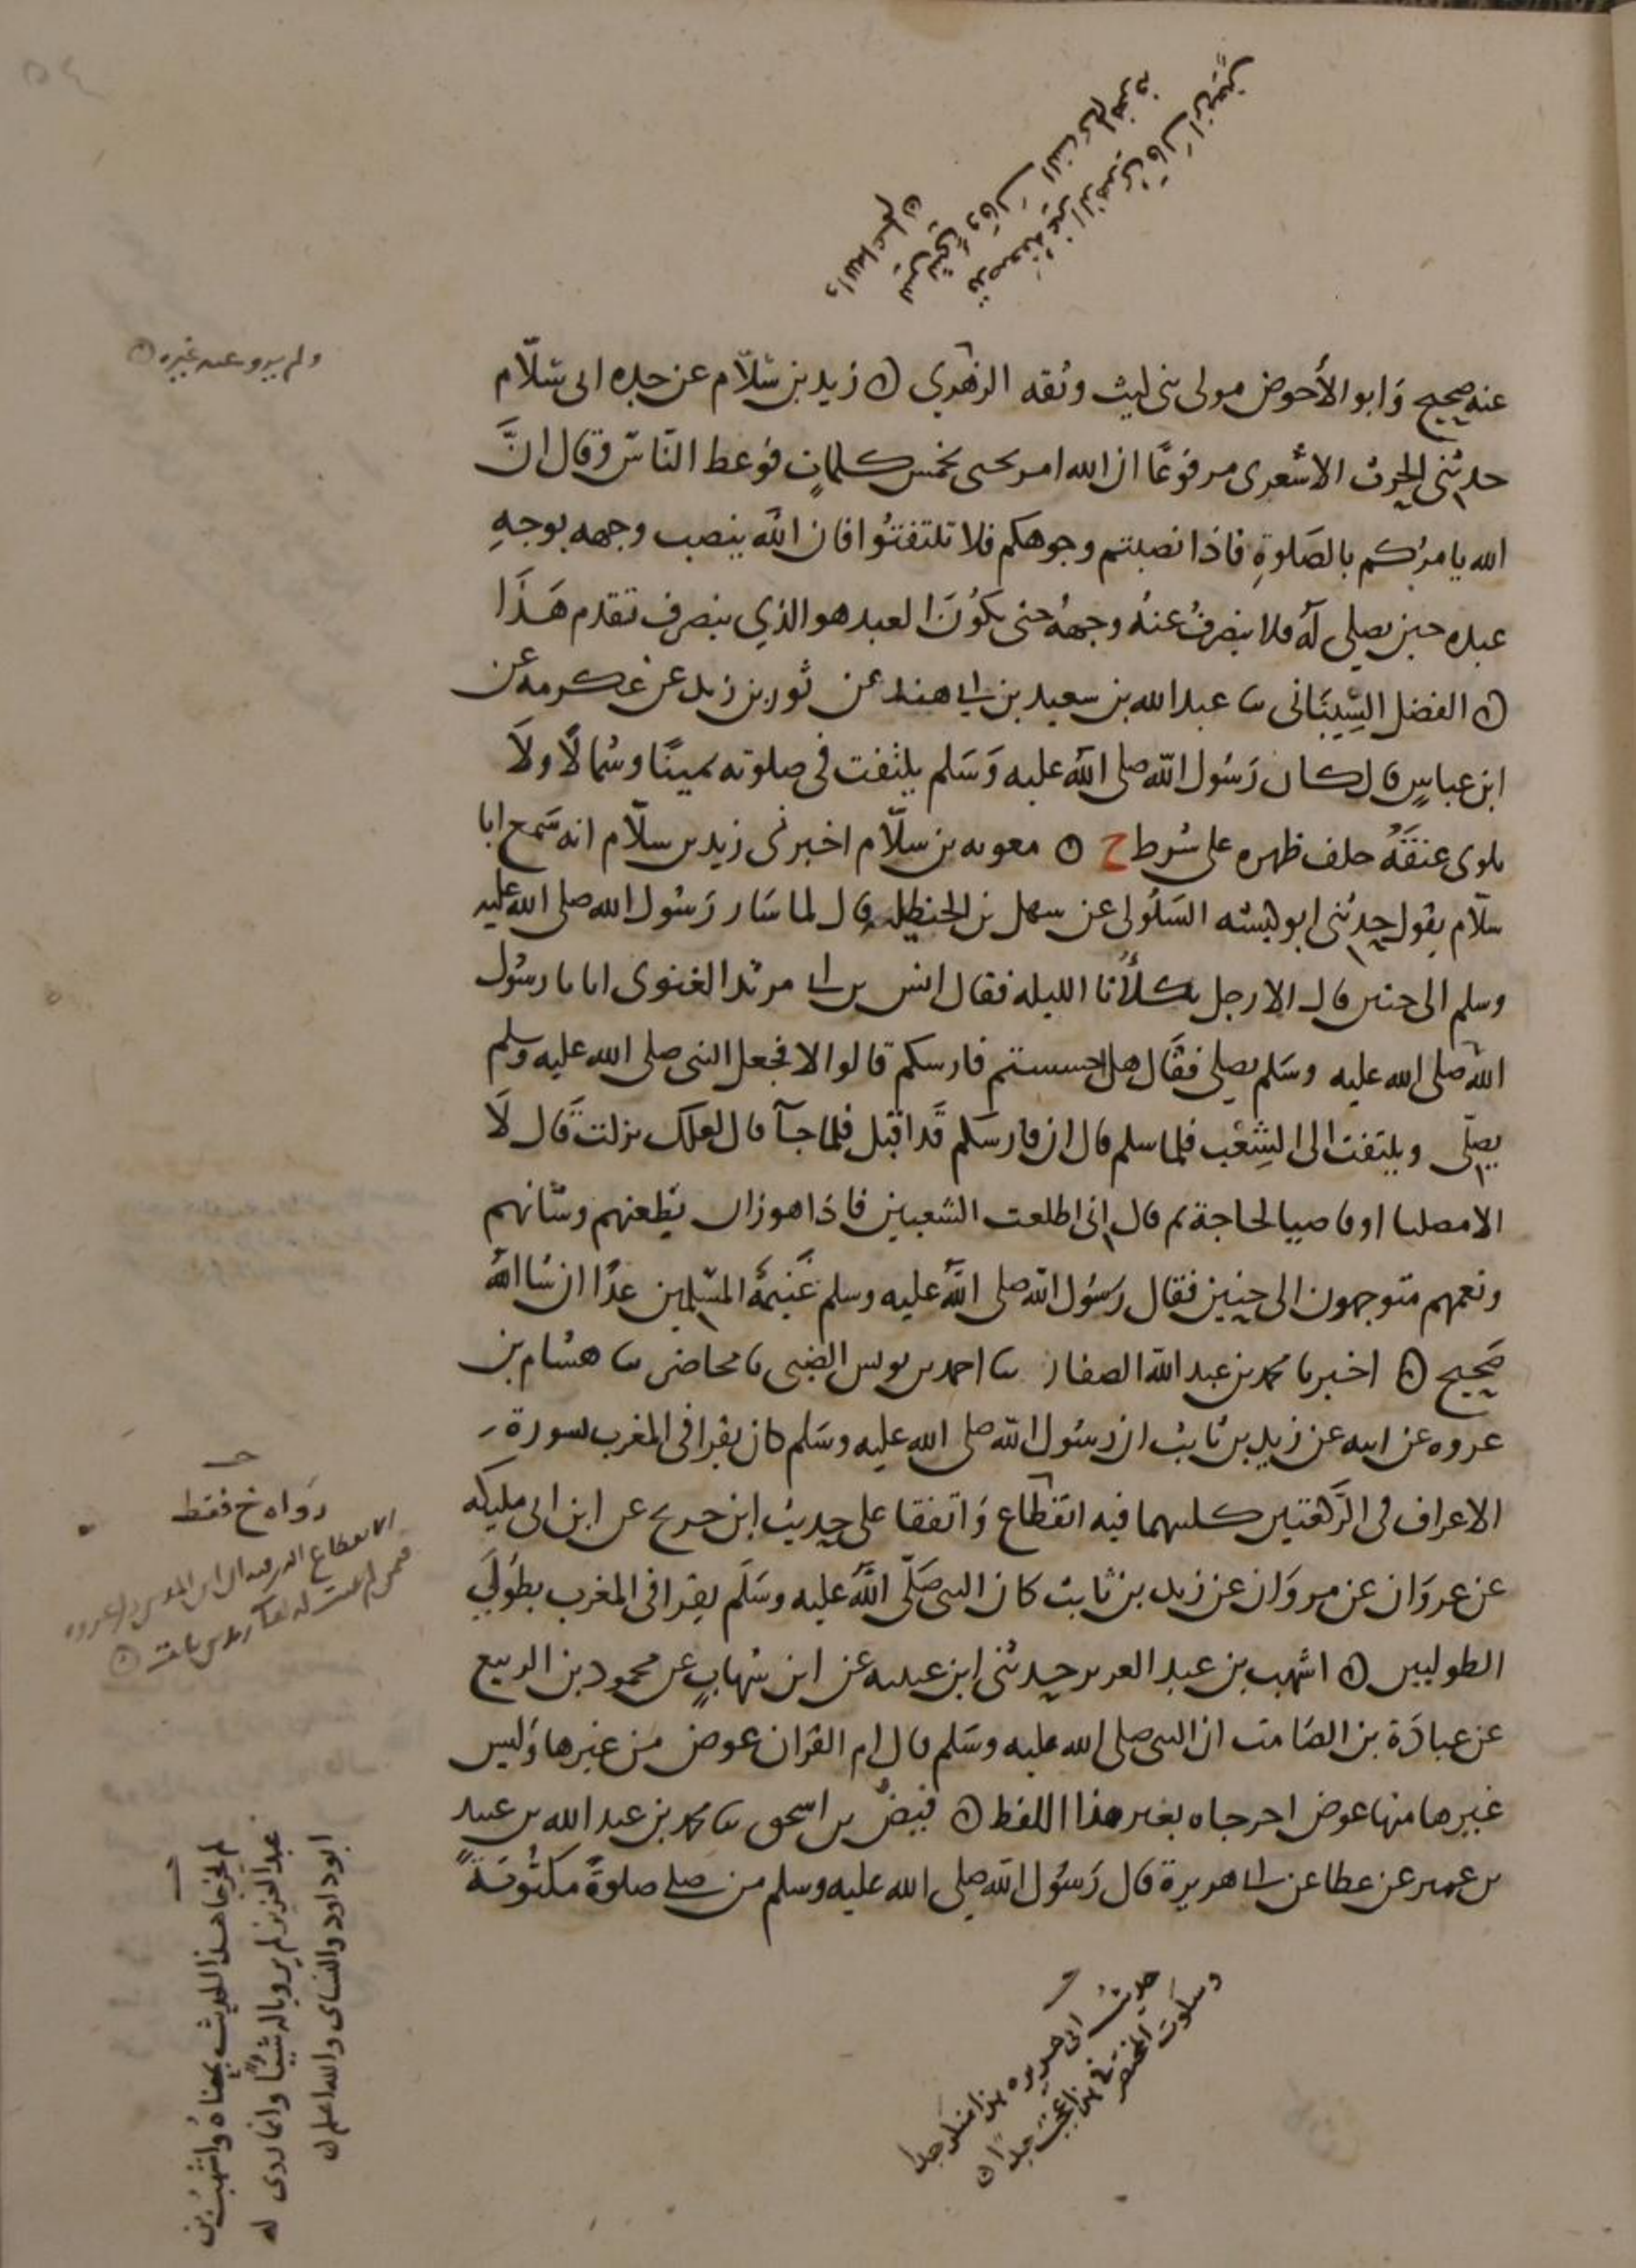 عنه صحيح وَابو الأحوص مولى بنى ليث وثقه الزهري ۞ زيد بن سَلّام عن جده ابى سَلّام
حدثنى الحرث الاشعرى مرفوعًا ان الله امر يحيى بخمس كلماتٍ فوعظ النّاس وقال انَّ
الله يامركم بالصَلوةِ فاذا نصبتم وجوهكم فلا تلتفتُوا فان الله ينصب وجهه بوجهِ
عبده حين يصلى لَهُ فلا ينصرفُ عنهُ وجههُ حتى يكُونَ العبد هو الذي ينصرف تقدم هَذَا
۞ الفضل الشِيبَانى ثنا عبد الله بن سعيد بن ابي هند عن ثور بن زيد عن عكرمه عن
ابن عباسٍ قال كان رَسُول الله صلى الله عليه وَسَلم يلتفت فى صلوته يمينًا وشمالًا ولَا
يلوى عنقَهُ خلف ظهره على شرط خ ۞ معويه بن سلّام اخبرنى زيد بن سلّام انه سَمع ابا
سلّام يقول حدثنى ابو كبشه السَلُولى عن سهل بن الحنظليه قال لما سَار رَسُول الله صلى الله عليه
وسلم الى حنين قال الا رجل يكلأُنا الليله فقال انس بن ابى مرثد الغنوى انا يا رسُول
الله صلى الله عليه وسَلم يصلى فقَال هل احسستم فارسكم قالوا لا فجعل النبى صلى الله عليه وسلم
يصلّى ويلتفت الى الشِعْب فلما سلم قال ان فارسكم قَد اقبل فلما جآ قال لعلك نزلت قَال لَا
الا مصليا او قاضيا لحاجة ثم قال انى اطلعت الشعبين فاذا هوزان بظعنهم وشَانهم
ونعمهم متوجهون الى حنين فقال رسُول الله صلى الله عليه وسلم غَنيمةُ المسْلمين غدًا ان شا الله
صَحيح ۞ اخبرنا محمد بن عبد الله الصفار ثنا احمد بن يونس الضبى ثنا محاضر ثنا هشام بن
عروه عن ابيه عن زيد بن ثابت ان رسُول الله صلى الله عليه وسَلم كان يقرا فى المغرب بسورة
الاعراف فى الرَّكعتين كليهما فيه انقطاع وَاتفقا على حديث ابن جريج عن ابن ابى مليكه
عن عروَان عن مروَان عن زيد بن ثابت كان النبى صَلّى الله عليه وسَلّم يقرا فى المغرب بطُولَي
الطوليين ۞ اشهب بن عبد العزيز حدثنى ابن عيينه عن ابن شهابٍ عن محمود بن الربيع
عن عبادَة بن الصَامت ان النبى صلى الله عليه وسَلم قال ام القرَان عوض من غيرها وَليس
غيرها منها عوض اخرجاه بغير هذا اللفظ ۞ فيضُ بن اسحق ثنا محمد بن عبد الله بن عبيد
بن عمير عن عطا عن ابى هريرة قال رَسُول الله صلى الله عليه وسلم من صلى صلوةً مكتُوبَةً
ولم يرو عنه غيره ۞
رَواه خ فقط
لم يخرجا هذا الحديث بمعناهُ واشهبُ بن
عبد العزيز لم يرويا له شيئًا وانما روى له
ابو داود والنساى والله اعلم
حديث ابى هريره هذا منكر جدا
وسكوت المختصر فى هذا عجب جدًا ۞